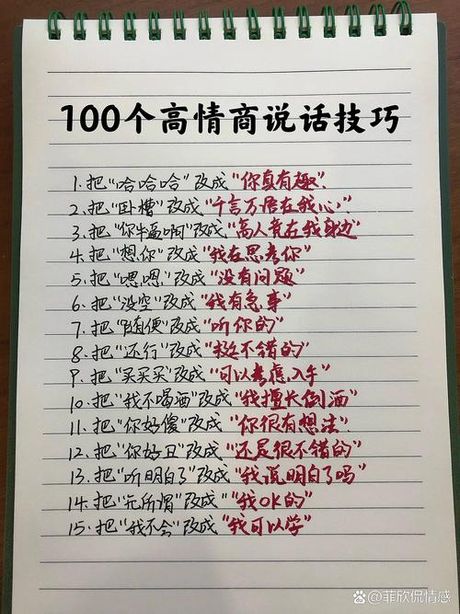 100个高情商说话技巧
1.把"哈哈哈"改成"你真有趣"
2.把"卧槽"改成"千言万语在我心"
3.把"你牛逼啊"改成"高人竟在我身边"
4.把"想你"改成"我在思考你"
5.把"嗯嗯"改成"没有问题"
6.把"没空"改成"我有急事"
7.把"随便"改成"听你的"
8.把"还行"改成"挺不错的"
9.把"买买买"改成"可以考虑入手"
10.把"我不喝酒"改成"我擅长倒酒"
11.把"你好傻"改成"你很有想法"
12.把"你好丑"改成"还是很不错的"
13.把"听明白了"改成"我说明白了吗"
14.把"无所谓"改成"我OK的"
15.把"我不会"改成"我可以学"
@菲欣侃情感